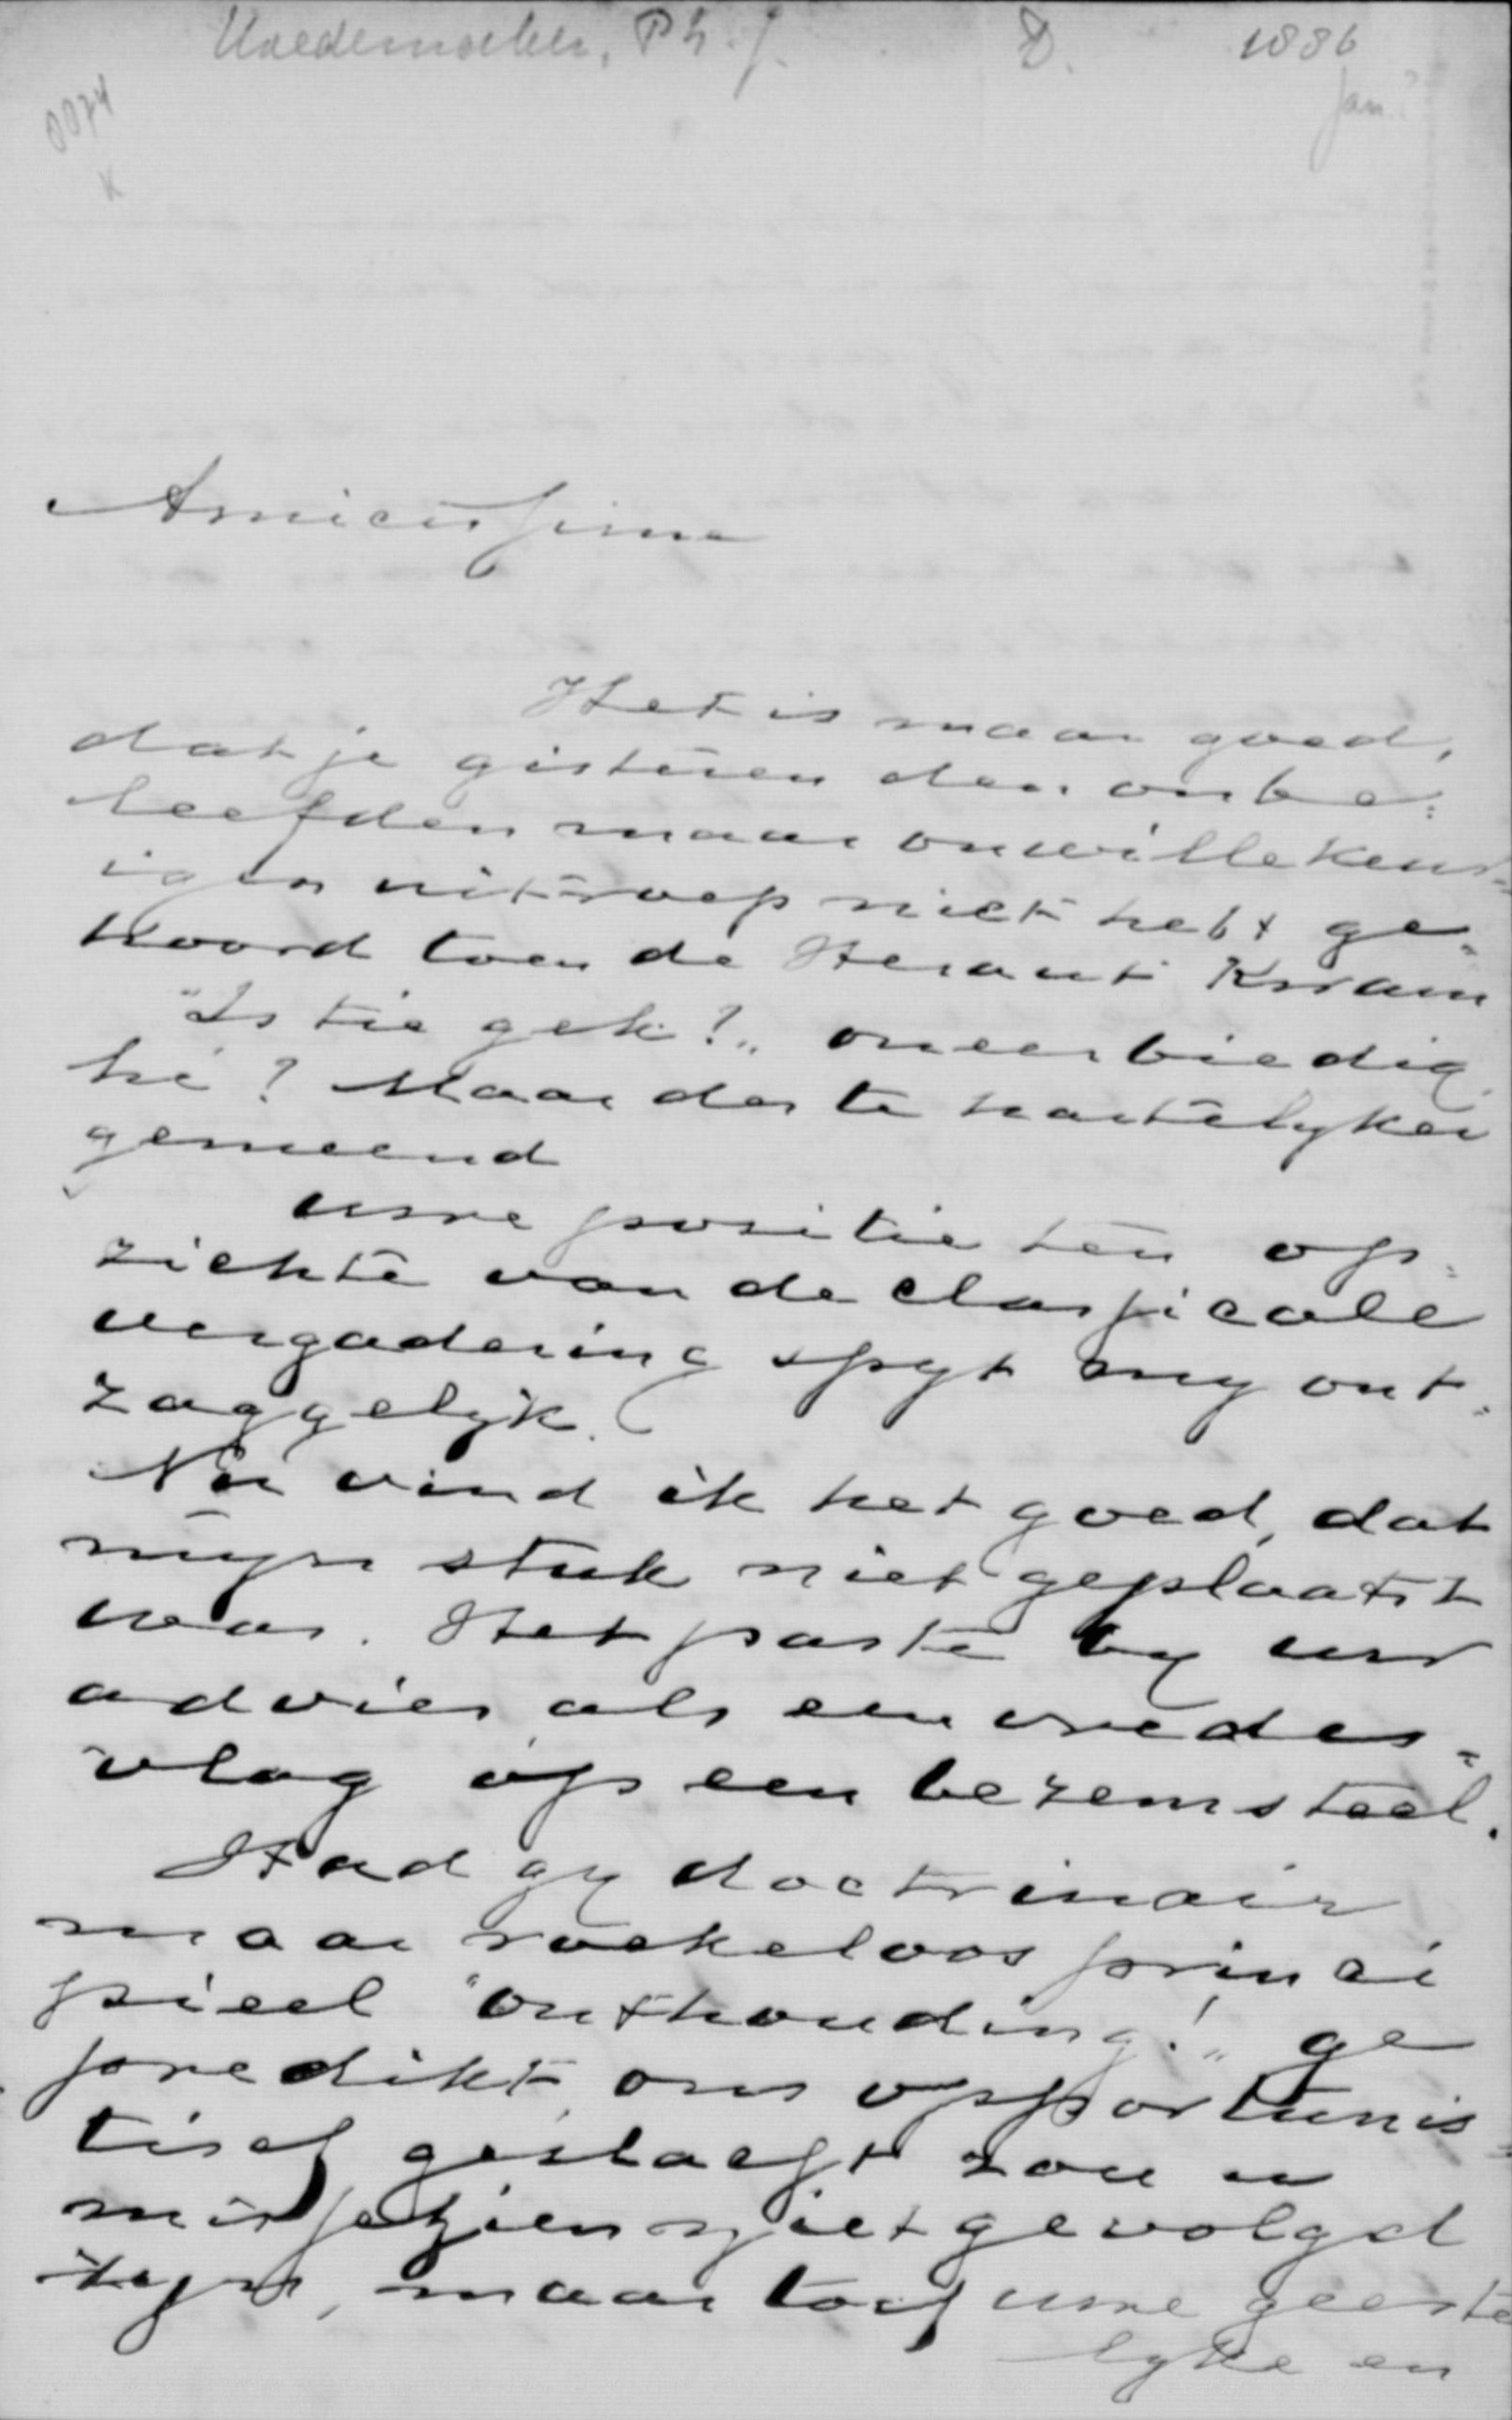 Hoedemaker, Ph. J. D. 1886
Jan.?
0074
x
Amicissime
Het is maar goed,
dat je gisteren den onbe=
leefden maar onwillekeur=
igen uitroep niet hebt ge=
hoord toen de Heraut kwam
"Is tie gek?" oneerbiedig
hé? Maar des te hartelyker
gemeend
uwe positie ten op=
zichte van de classicale
vergadering spyt my ont=
zaggelyk.
Nu vind ik het goed, dat
mijn stuk niet geplaatst
was. Het paste by uw
advies als een vredes=
vlag op een bezemsteel.
Had gy doctrinair
maar roekeloos princi
pieel "onthouding!" ge
predikt, ons opportunis=
tisch gestaeft zou u
misschien niet gevolgd
zyn, maar toch uwe geeste
lyke en